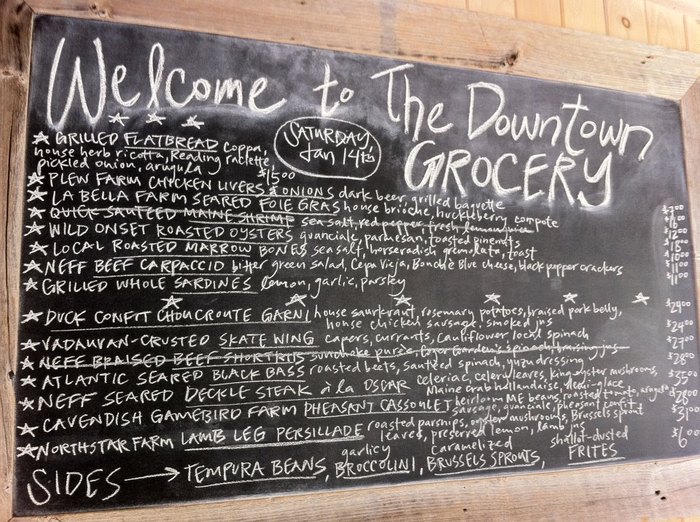 Welcome to The Downtown
GROCERY
SATURDAY
Jan 14th
GRILLED FLATBREAD coppa,
house herb ricotta, Reading raclette,
pickled onion, arugula $15.00
PLEW FARM CHICKEN LIVERS & ONIONS dark beer, grilled baguette
LA BELLA FARM SEARED FOIE GRAS house brioche, huckleberry compote
QUICK SAUTEED MAINE SHRIMP sea salt, red pepper, fresh lemon juice
WILD ONSET ROASTED OYSTERS guanciale, parmesan, toasted pinenuts
LOCAL ROASTED MARROW BONES sea salt, horseradish gremolata, toast
NEFF BEEF CARPACCIO bitter green salad, Cepa Vieja, Blue cheese, black pepper crackers
GRILLED WHOLE SARDINES lemon, garlic, parsley
DUCK CONFIT CHOUCROUTE GARNI house saurkraut, rosemary potatoes, braised pork belly,
house chicken sausage, smoked jus
VADAUVAN-CRUSTED SKATE WING capers, currants, Cauliflower, local spinach
NEFF BRAISED BEEF SHORTRIBS sunchoke purée, Garden's spinach, braising jus
ATLANTIC SEARED BLACK BASS roasted beets, sautéed spinach, yuzu dressing
NEFF SEARED DECKLE STEAK à la OSCAR celeriac, celery leaves, king oyster mushrooms,
Maine Crab hollandaise, demi-glace
CAVENDISH GAMEBIRD FARM PHEASANT CASSOULET heirloom ME beans, roasted tomato, arugula
sausage, guanciale, pheasant confit
NORTHSTAR FARM LAMB LEG PERSILLADE roasted parsnips, oyster mushrooms, Brussels sprout
leaves, preserved lemon, lamb jus
SIDES → TEMPURA BEANS, garlicy BROCCOLINI, caramelized BRUSSELS SPROUTS, shallot-dusted FRITES